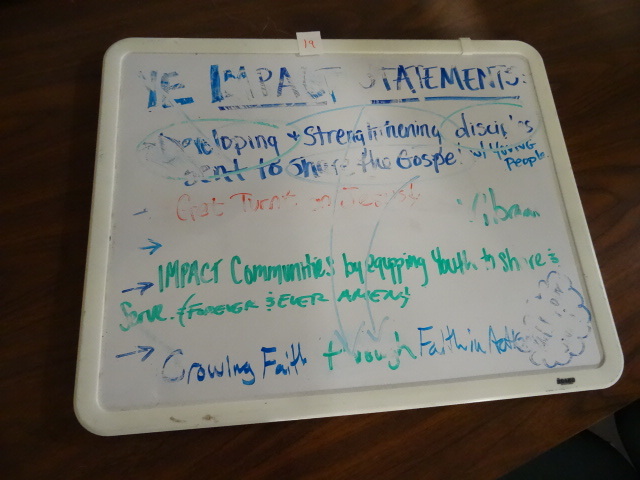 19
YE IMPACT STATEMENTS:
Developing + Strengthening disciples
sent to Share the Gospel w/ Young
People.
→ IMPACT Communities by equpping Youth to share &
Serve. {FOREVER & EVER AMEN}
→ Growing Faith through Faith in Action